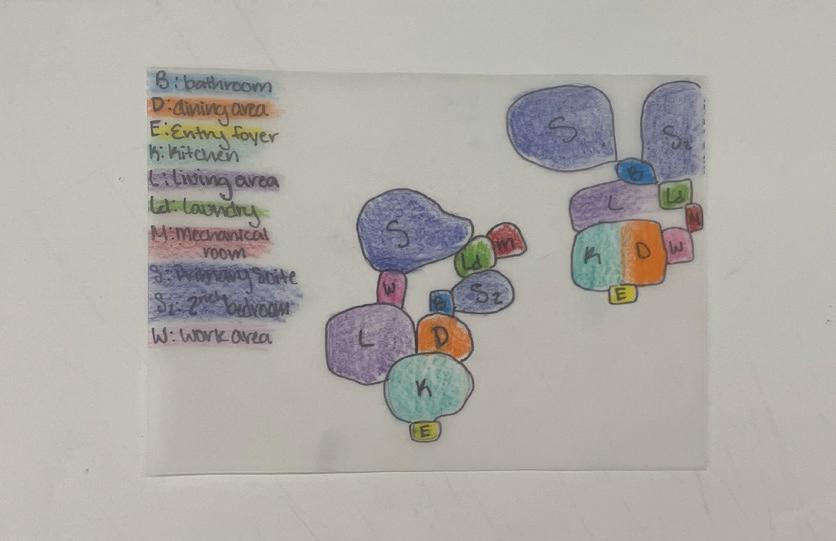 B: bathroom
D: dining area
E: Entry foyer
K: Kitchen
L: Living area
Ld: Laundry
M: Mechanical
room
S: Primary Suite
S2: 2nd bedroom
W: Work area
S
M
Ld
W
B
S2
L
D
K
E
S
S2
B
L
Ld
M
K
D
W
E